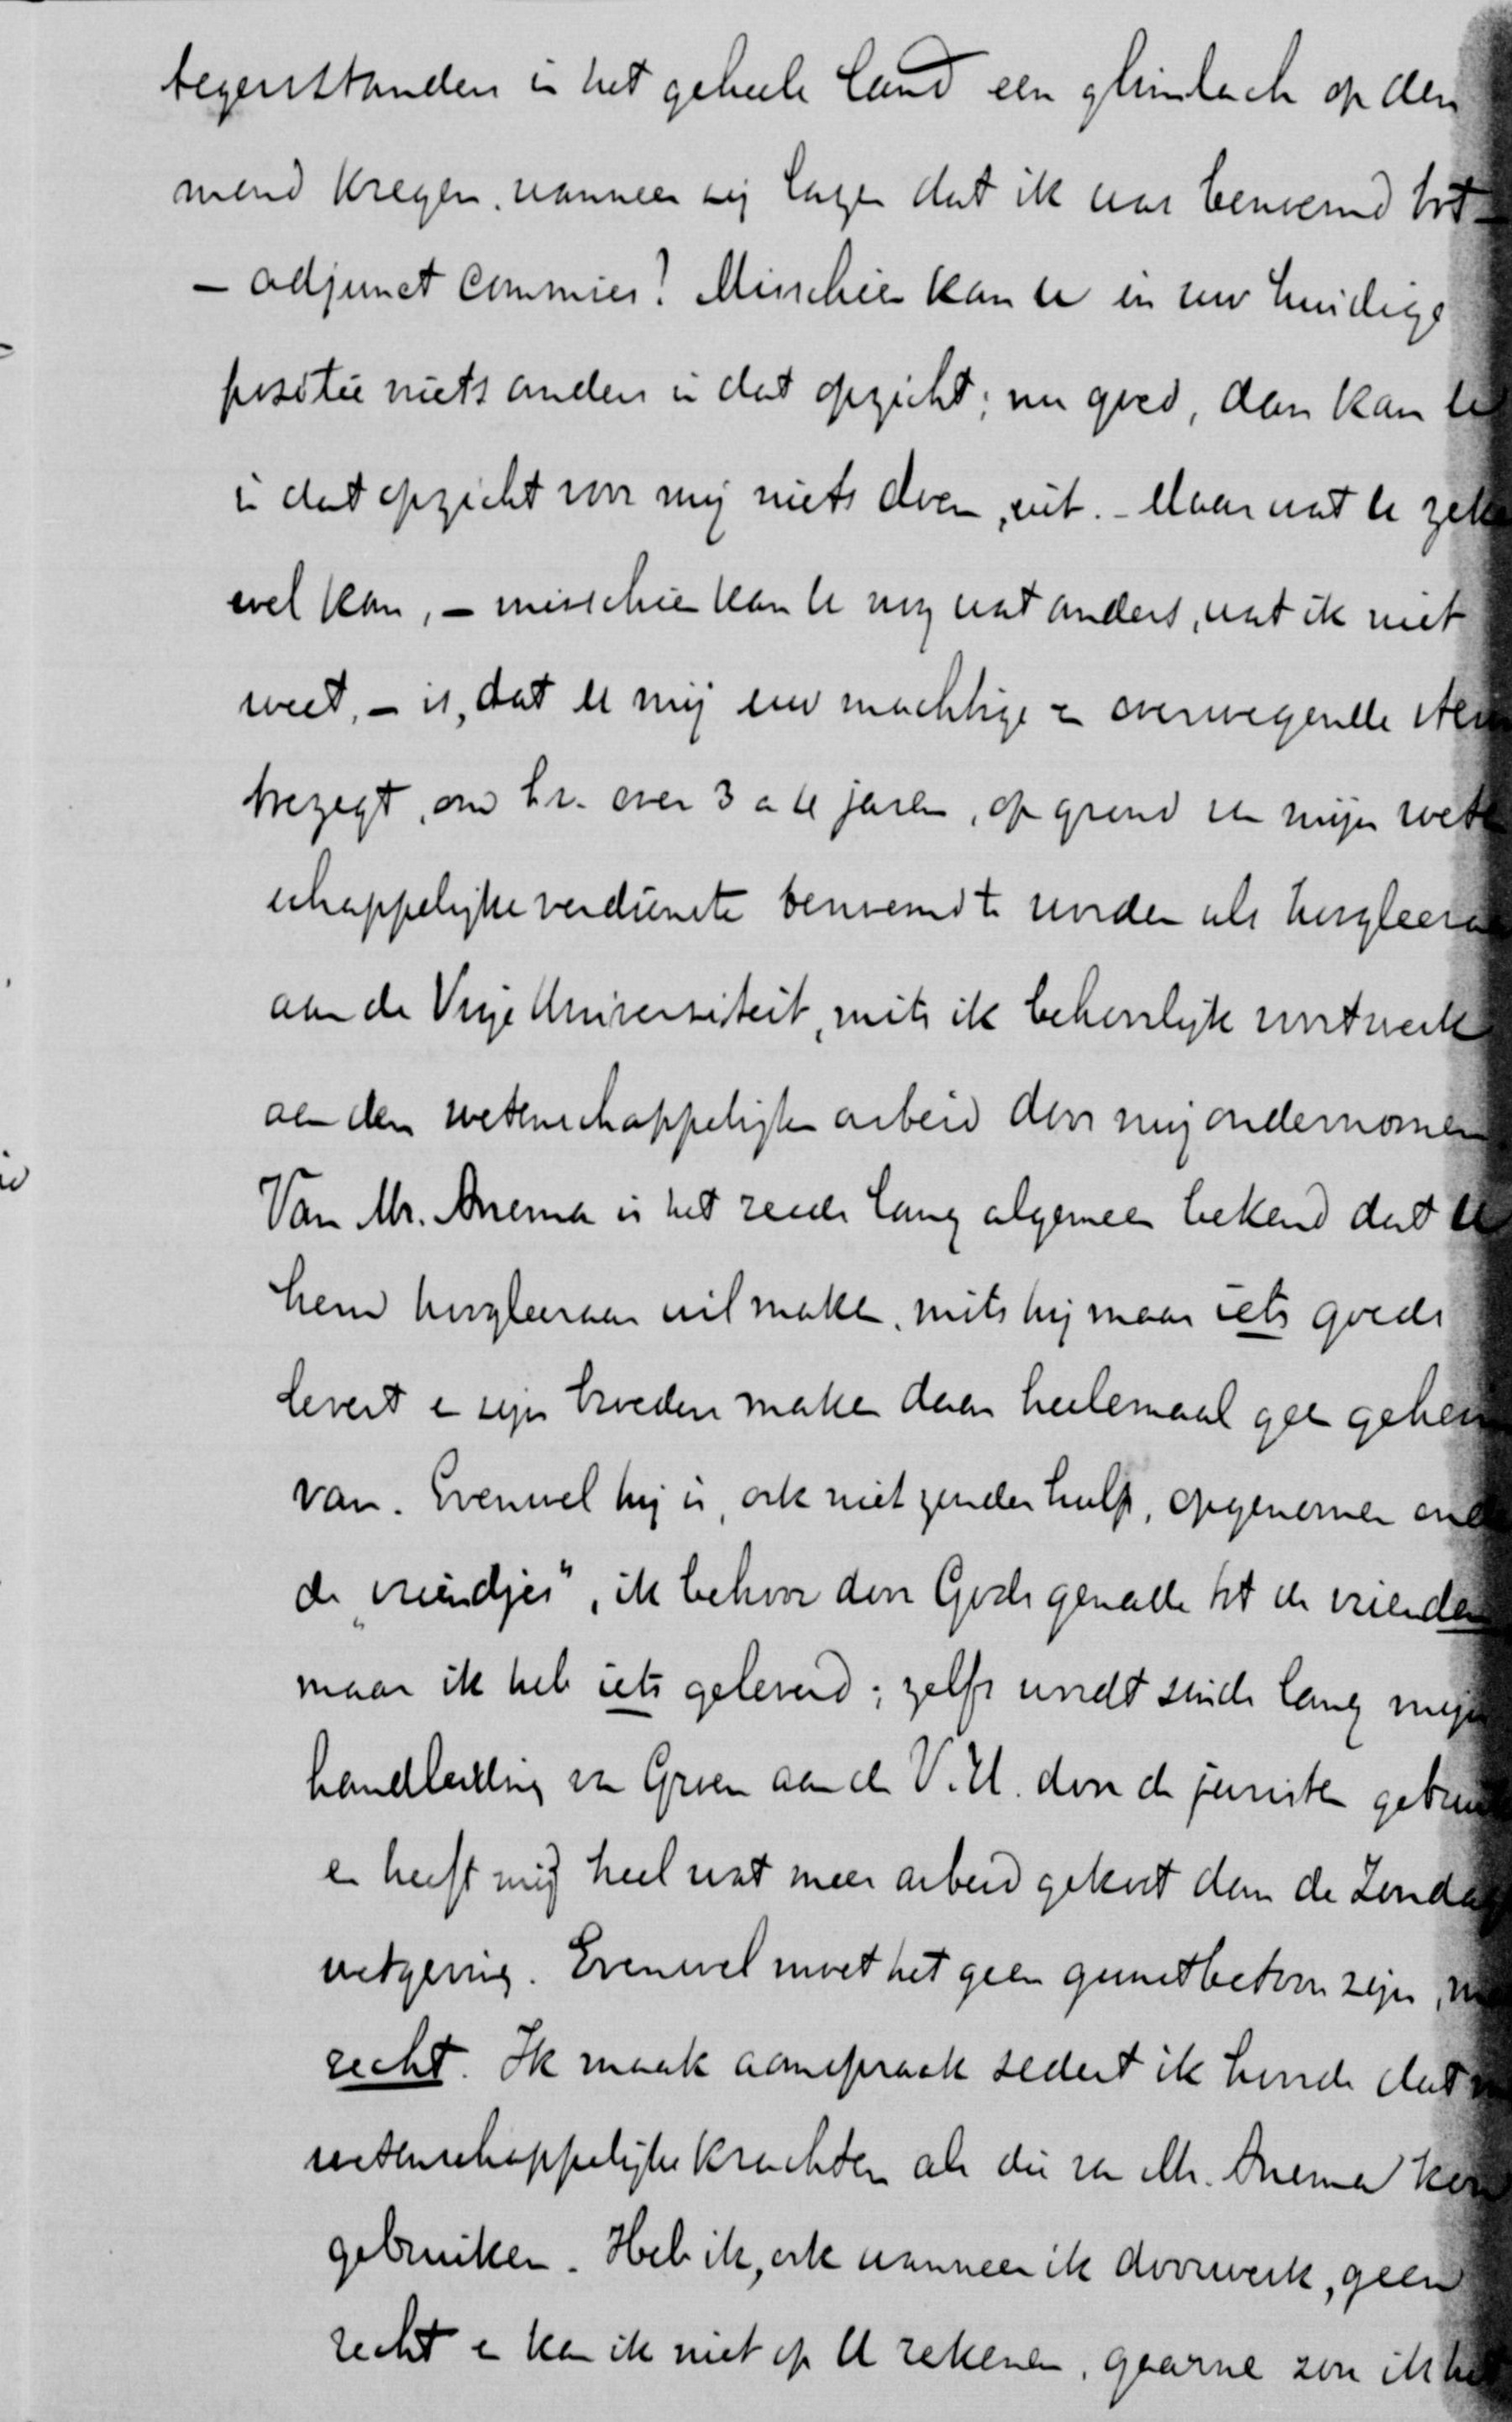 tegenstanders in het geheele land een glimlach op den
mond kregen, wanneer zij lazen dat ik was benoemd tot –
– adjunct commies! Misschien kan U in uw huidige
positie niets anders in dat opzicht; nu goed, dan kan U
in dat opzicht voor mij niets doen, uit. – Maar wat U zeke
wel kan, – misschien kan U nog wat anders, wat ik niet
weet, – is, dat U mij uw machtige en overwegende stem
toezegt, om b.v. over 3 a 4 jaren, op grond van mijn wete
schappelijke verdienste benoemd te worden als hoogleera
aan de Vrije Universiteit, mits ik behoorlijk voortwerk
aan den wetenschappelijken arbeid door mij ondernomen
Van Mr. Anema is het reeds lang algemeen bekend dat U
hem hoogleeraar wil maken, mits hij maar iets goeds
levert en zijn broeders maken daar heelemaal geen geheim
van. Evenwel hij is, ook niet zonder hulp, opgenomen ond
de „vriendjes", ik behoor door Gods genade tot de vrienden
maar ik heb iets geleverd; zelfs wordt sinds lang mijn
handleiding van Groen aan de V.U. door de juristen gebrui
en heeft mij heel wat meer arbeid gekost dan de Zondag
wetgeving. Evenwel moet het geen gunstbetoon zijn, m
recht. Ik maak aanspraak sedert ik hoorde dat m
wetenschappelijke krachten als die van Mr. Anema kon
gebruiken. Heb ik, ook wanneer ik doorwerk, geen
recht en kan ik niet op U rekenen, gaarne zou ik he